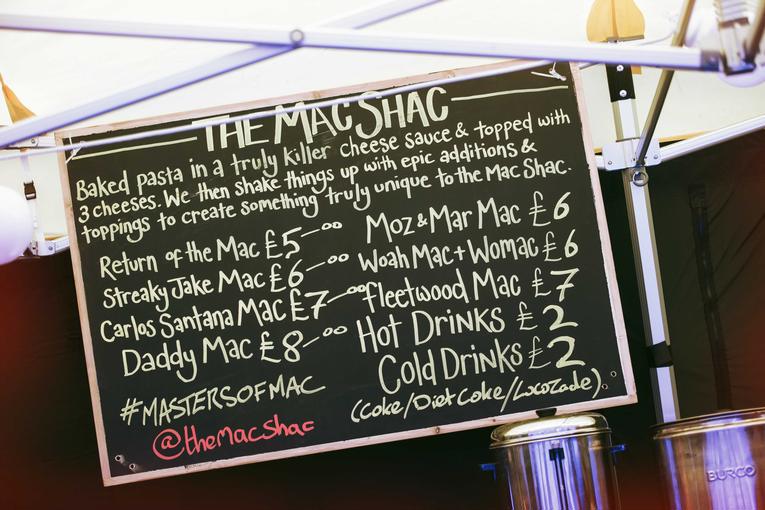 THE MAC SHAC
Baked pasta in a truly killer cheese sauce & topped with
3 cheeses. We then shake things up with epic additions &
toppings to create something truly unique to the Mac Shac.
Return of the Mac £5-00
Streaky Jake Mac £6-00
Carlos Santana Mac £7-00
Daddy Mac £8-00
#MASTERSOFMAC
@themacshac
Moz & Mar Mac £6
Woah Mac + Womac £6
fleetwood Mac £7
Hot Drinks £2
Cold Drinks £2
(Coke/Diet Coke/Lucozade)
BURCO